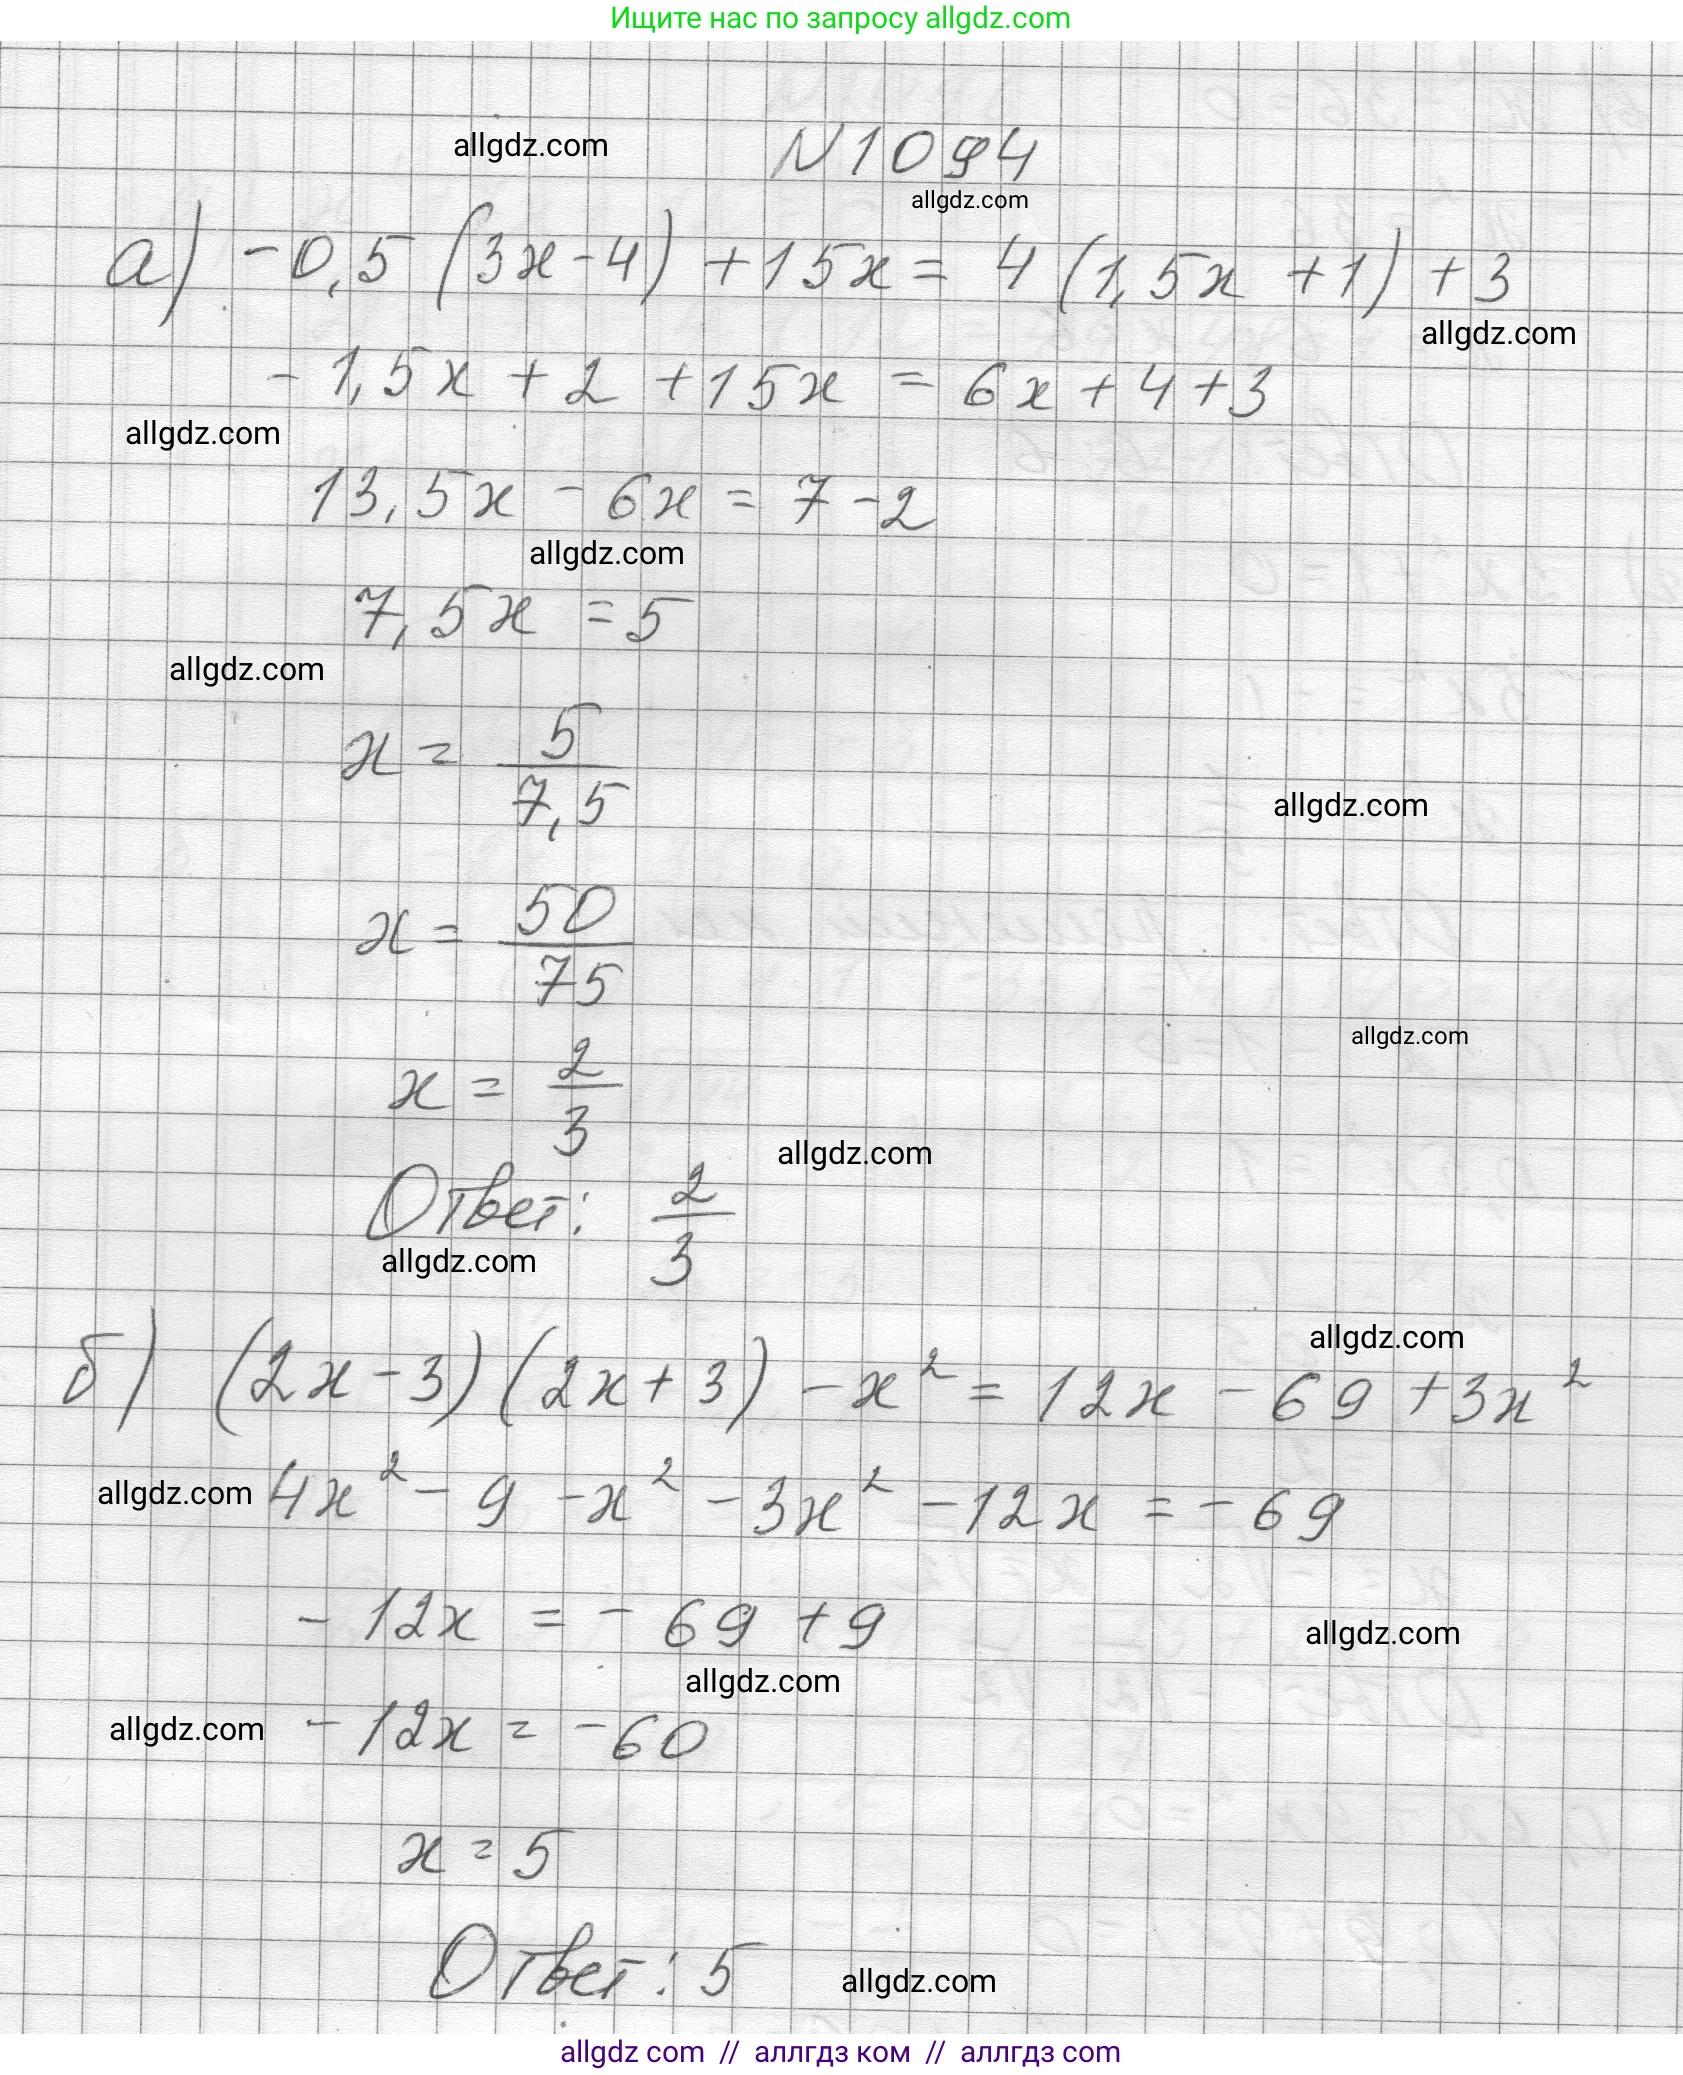 Ищите нас по запросу allgdz.com
allgdz.com
N 1094
allgdz.com
а) -0,5 (3x-4) + 15x = 4 (1,5x + 1) + 3
allgdz.com
- 1,5x + 2 + 15x = 6x + 4 + 3
allgdz.com
13,5x - 6x = 7 - 2
allgdz.com
7,5x = 5
allgdz.com
x = 5/7,5
allgdz.com
x = 50/75
allgdz.com
x = 2/3
allgdz.com
Ответ: 2/3
allgdz.com
allgdz.com
б) (2x - 3) (2x + 3) - x² = 12x - 69 + 3x²
allgdz.com 4x² - 9 - x² - 3x² - 12x = - 69
- 12x = - 69 + 9
allgdz.com
allgdz.com
allgdz.com - 12x = - 60
x = 5
Ответ: 5 allgdz.com
allgdz com // аллгдз ком // аллгдз com